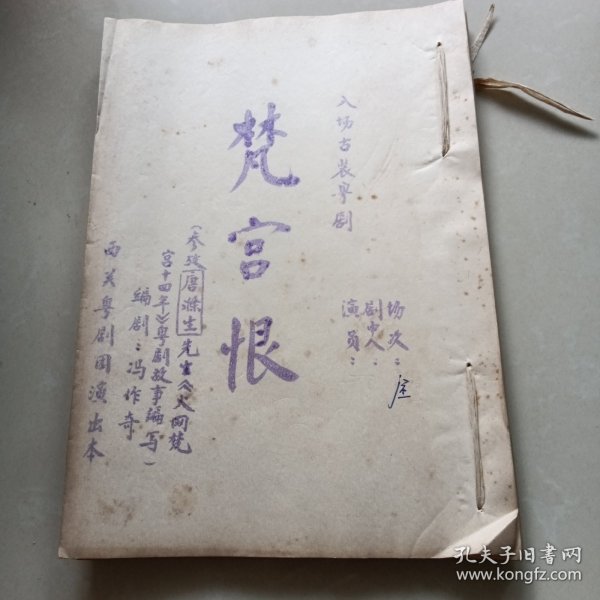 八场古装粤剧
场次：
剧中人：
演员：
梵宫恨
（参攷唐涤生先生《火网梵
宫十四年》粤剧故事编写）
编剧：冯作奇
西关粤剧团演出本
孔夫子旧书网
www.kongfz.com